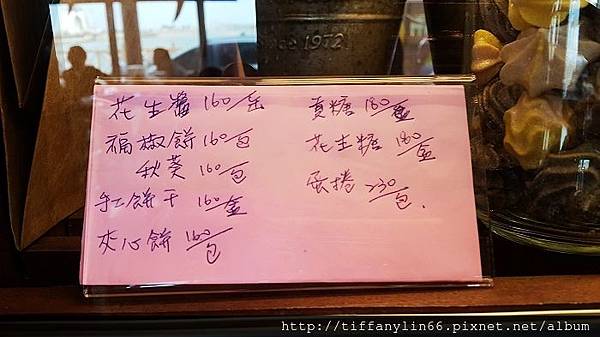 since 1972
花生醬 160/缶
福椒餅 160/包
秋葵 160/包
手工餅干 160/盒
夾心餅 160/包
貢糖 180/盒
花生糖 180/盒
蛋捲 230/包.
http://tiffanylin66.pixnet.net/album